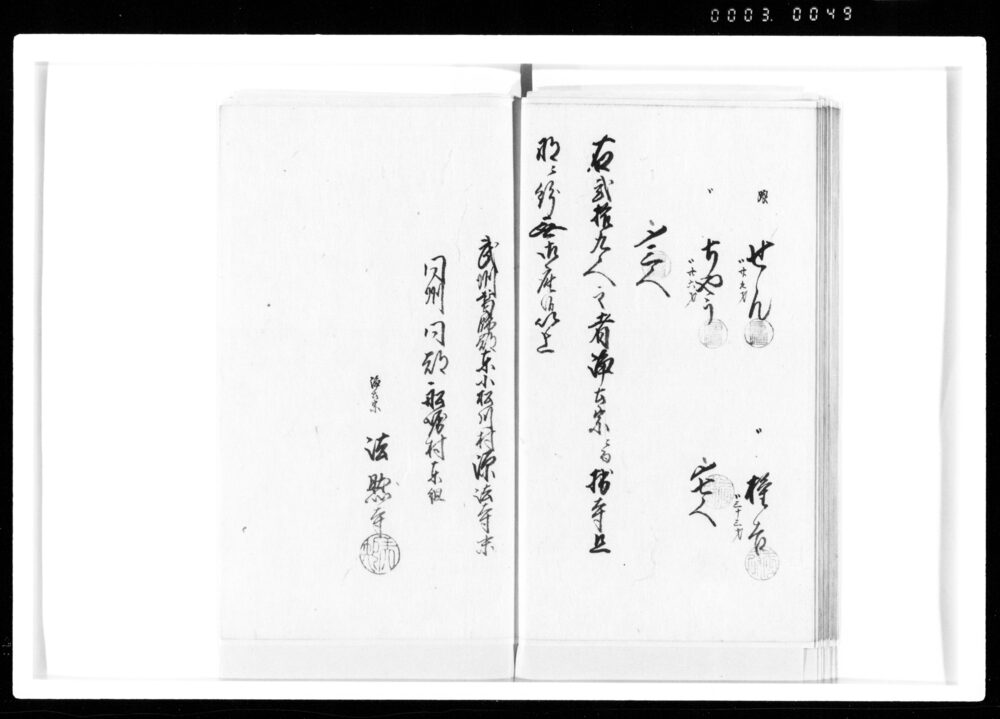 0003. 0049
娘
せん
〃廿九才
〃
権吉
〃三十三才
〃
ちやう
〃廿六才
〆七人
〆三人
右弐拾九人之者浄土宗ニ而拙寺旦
那ニ紛無御座候以上
武州葛飾郡東小松川村源法寺末
同州同郡船堀村東組
浄土宗
法龍寺